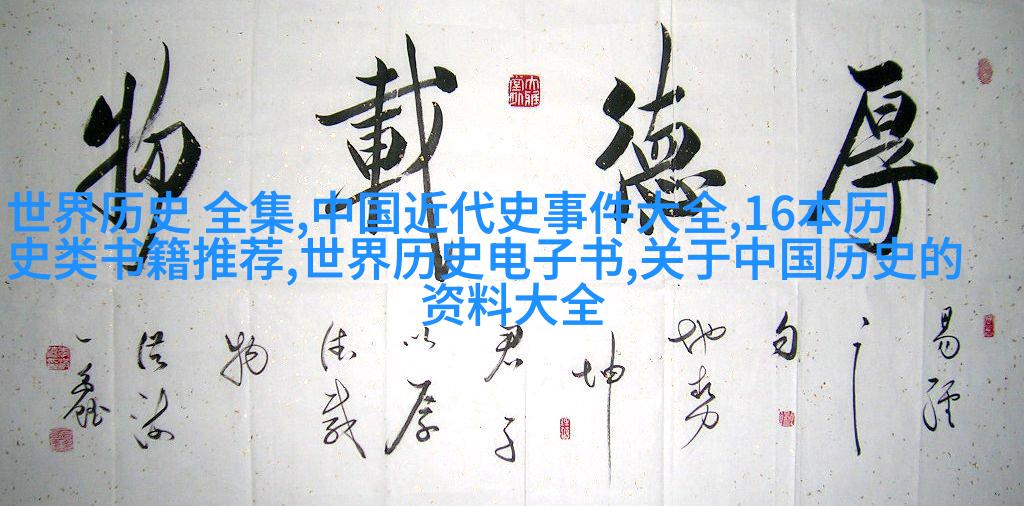 厚德載物
世界历史 全集,中国近代史事件大全,16本历
史类书籍推荐,世界历史电子书,关于中国历史的
资料大全
易經
之
句
地勢
坤
君子
以厚
德載
物